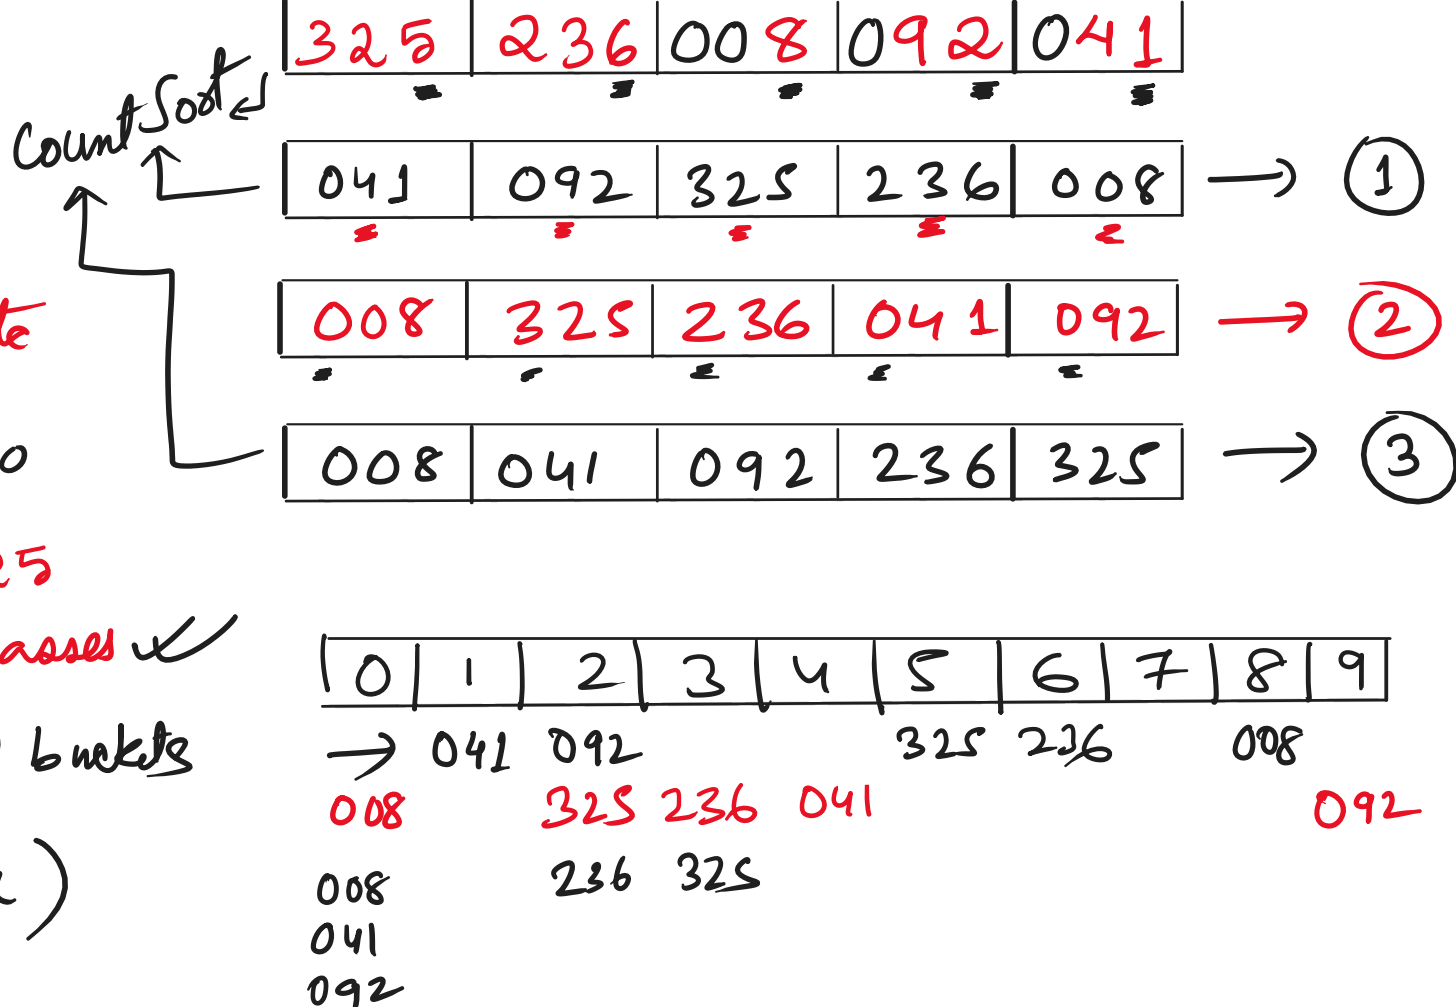 325 236 008 092 041
Count Sort
041 092 325 236 008 → 1
008 325 236 041 092 → 2
008 041 092 236 325 → 3
25
asses ✓
0 1 2 3 4 5 6 7 8 9
buckets → 041 092 325 236 008
008 325 236 041 092
008 236 325
041
092